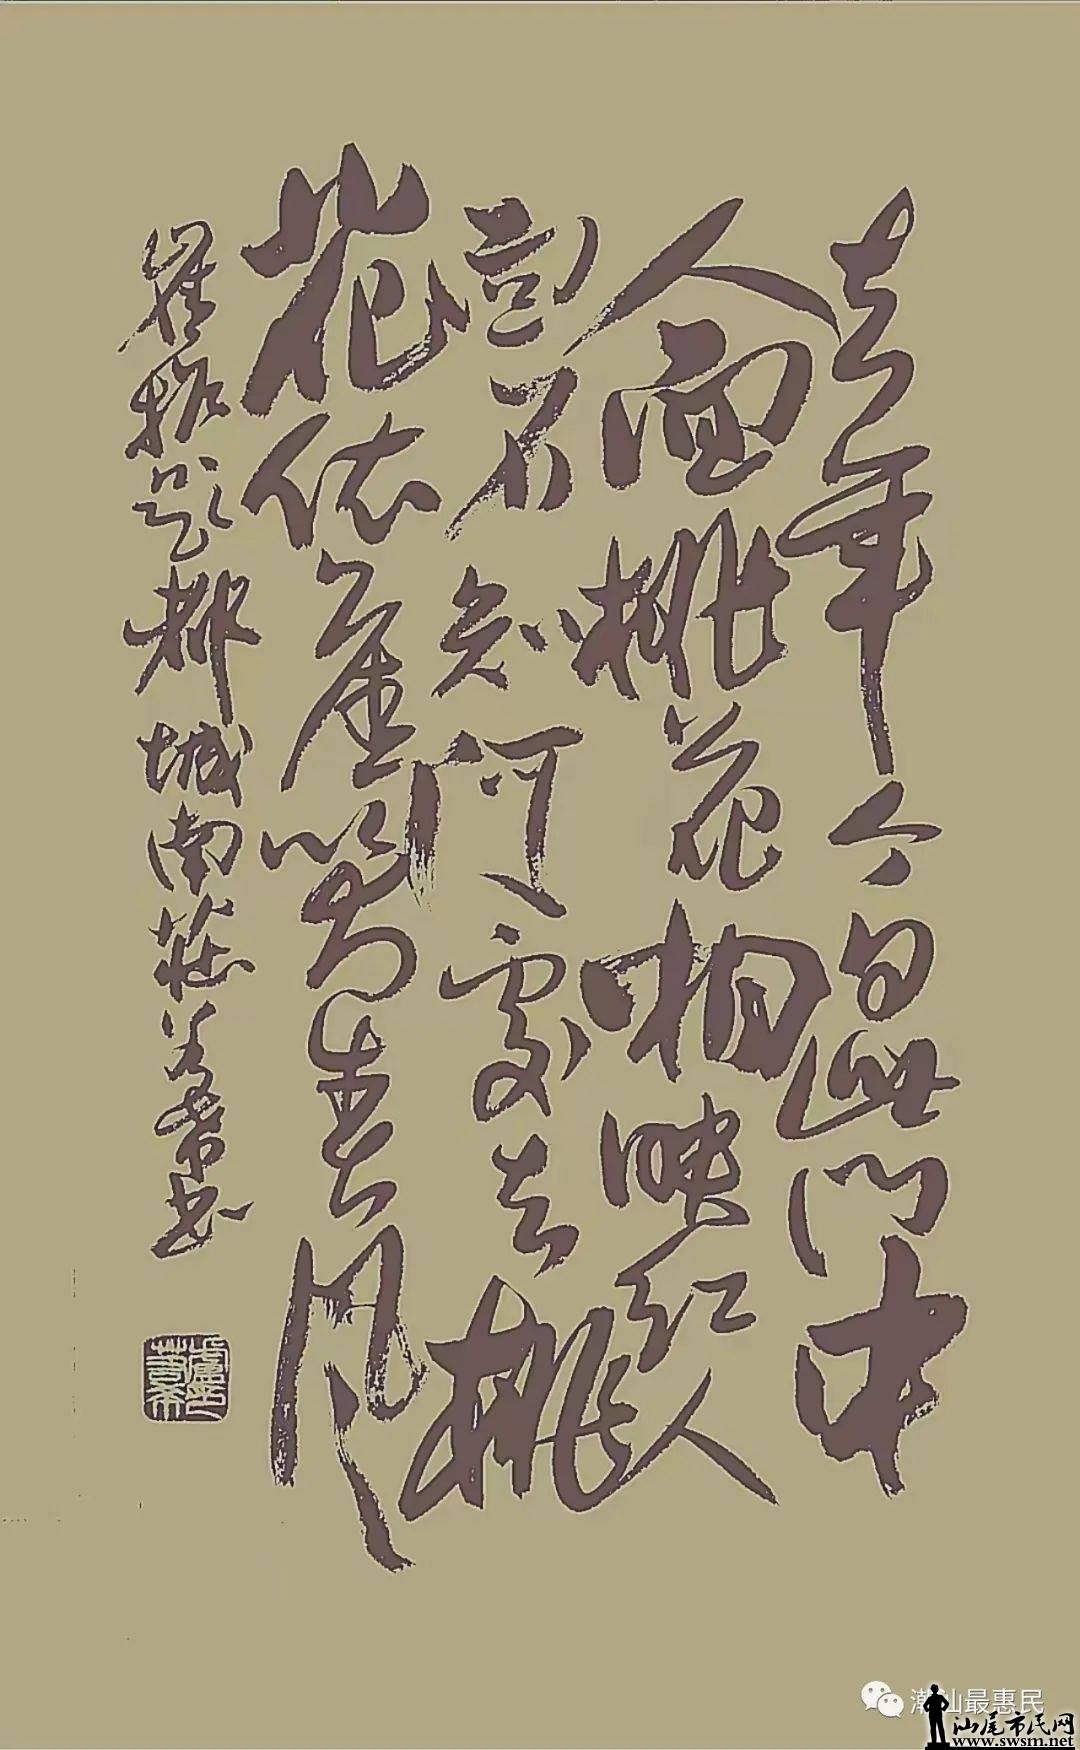 去年今日此门中
人面桃花相映红人
面不知何處去桃
花依舊笑春风
崔护题都城南莊
潮汕最惠民
汕尾市民网
www.swsm.net